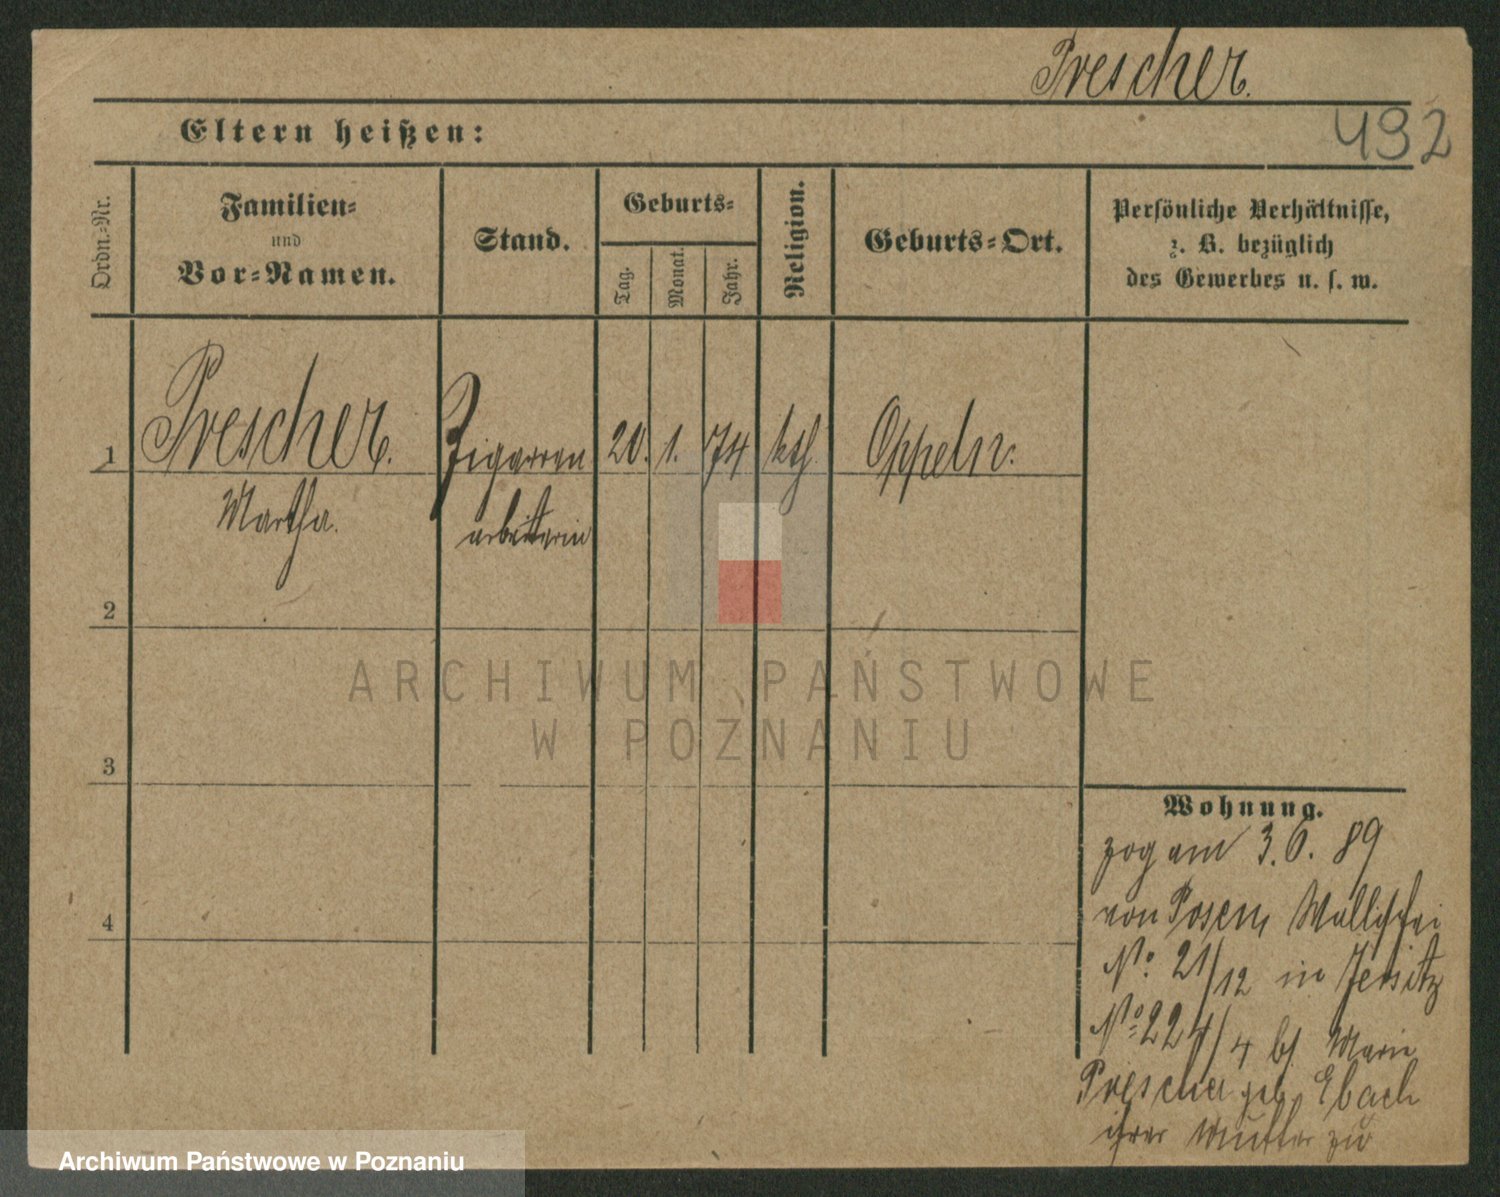 Prescher.
492
Eltern heißen:
Ordn.-Nr.
Familien-
und
Vor-Namen.
Stand.
Geburts-
Tag.
Monat.
Jahr.
Religion.
Geburts-Ort.
Persönliche Verhältnisse,
z. B. bezüglich
des Gewerbes u. s. w.
1
Prescher.
Martha.
Zigarren
arbeiterin
20. 1. 74
kth.
Oppeln.
2
3
4
ARCHIWUM PAŃSTWOWE
W POZNANIU
Wohnung.
zog am 3. 6. 89
von Posen, Wallischei
No. 21/12 in Jersitz
No. 224/4 bf. Marie
Prescher geb. Ebach
ihrer Mutter zu
Archiwum Państwowe w Poznaniu